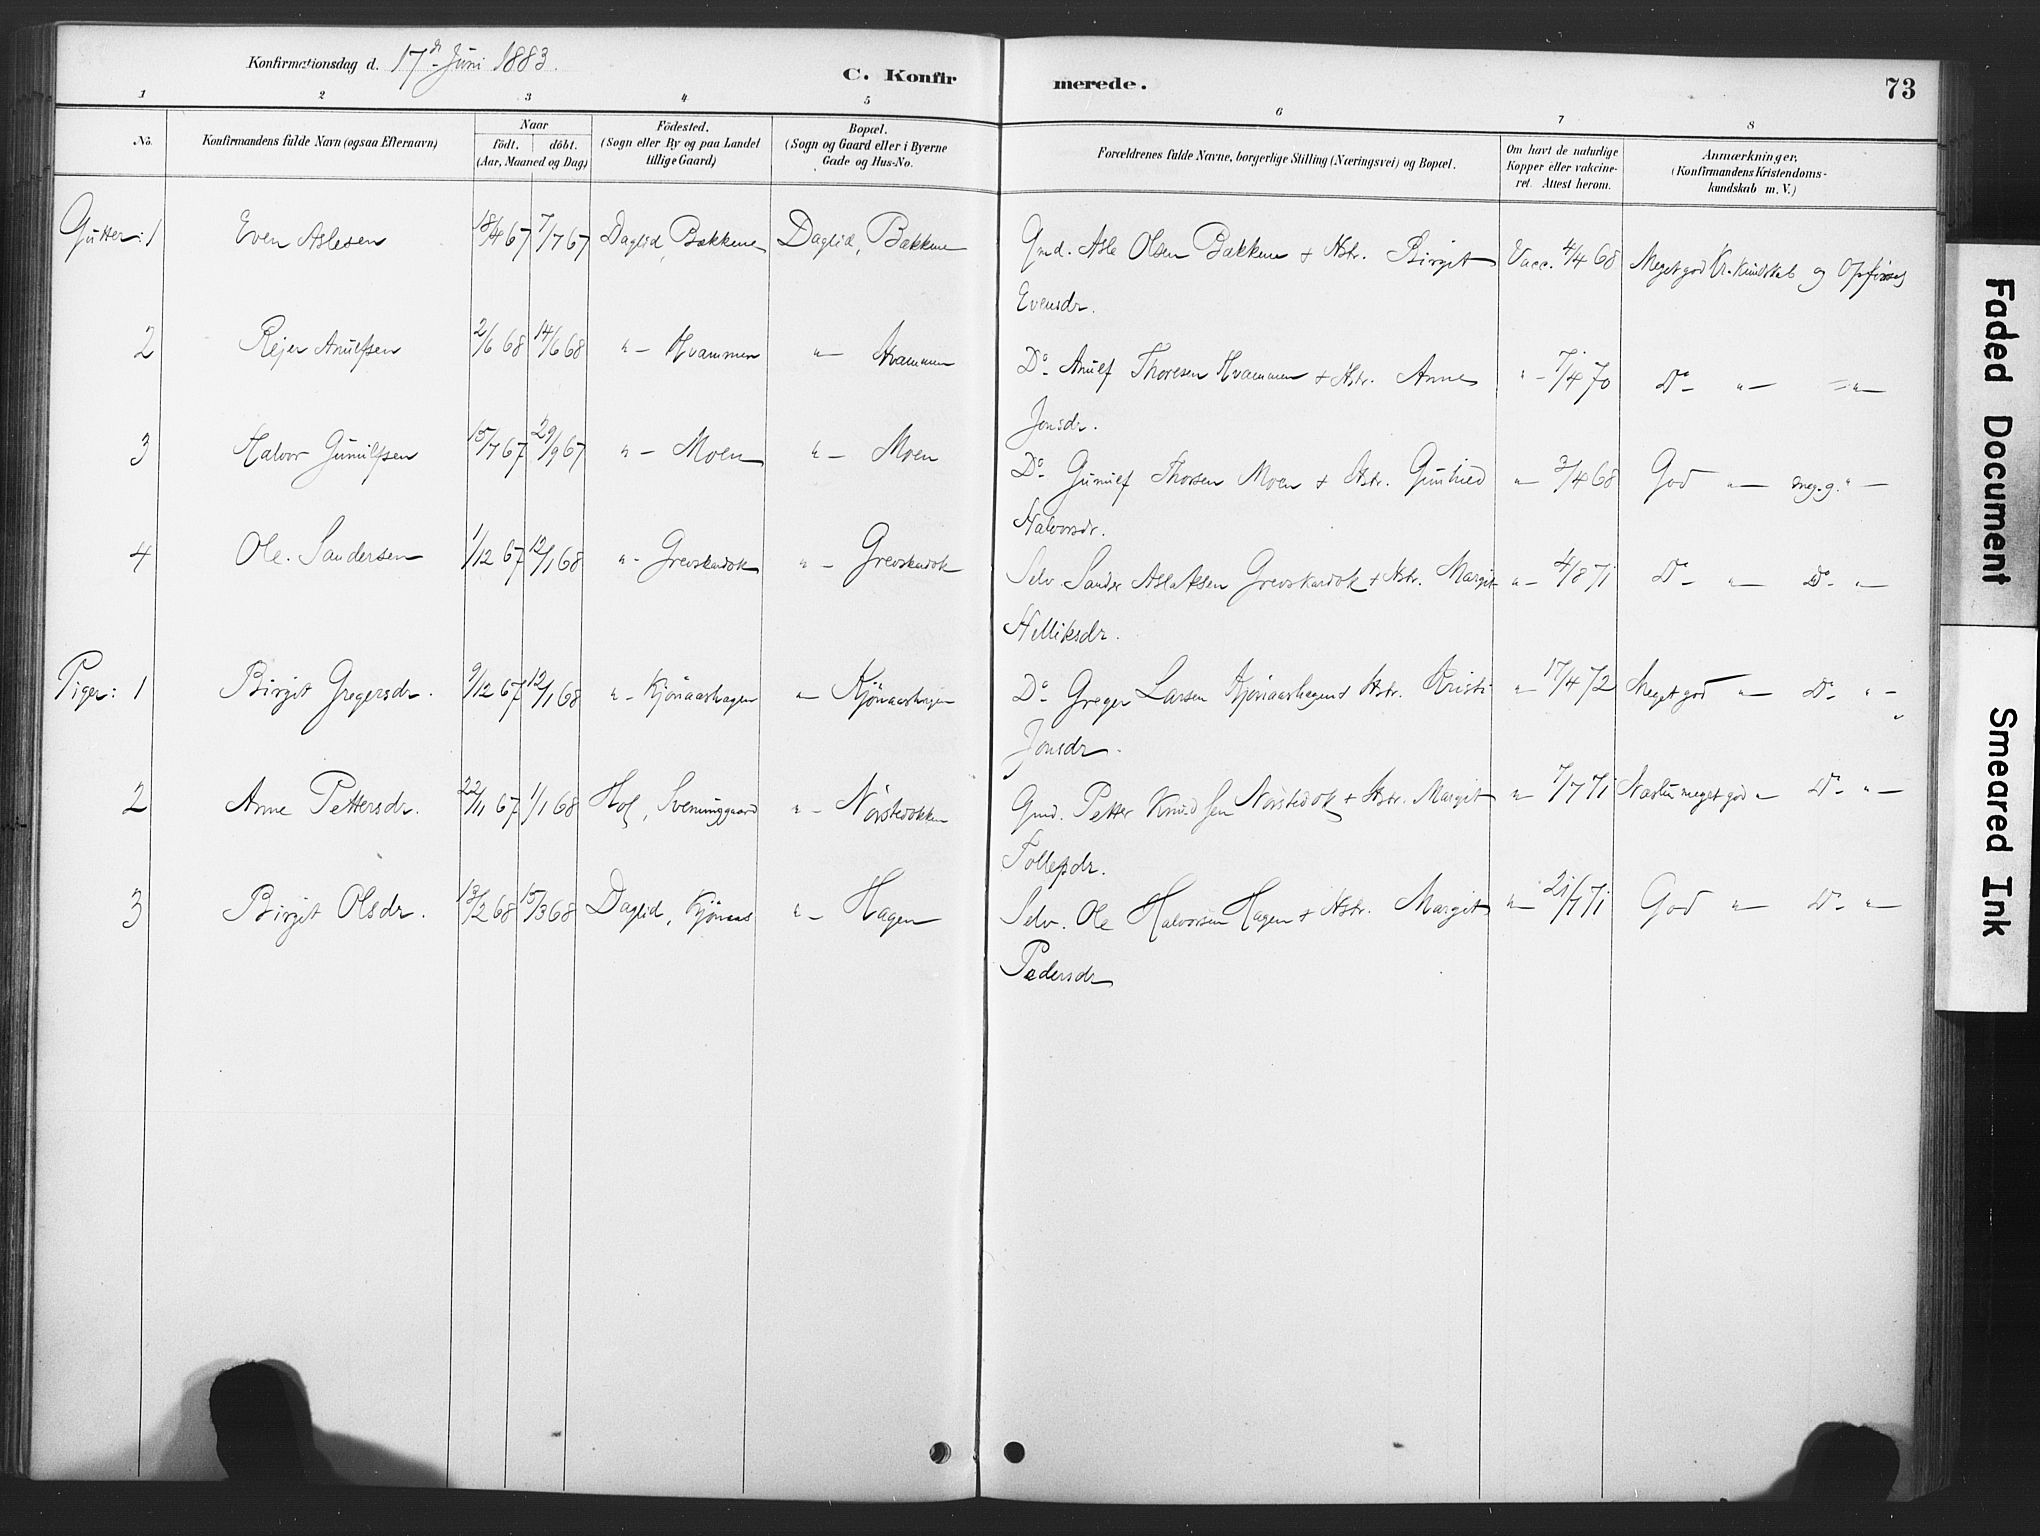 Konfirmationsdag d. 17de Juni 1883.
C. Konfirmerede.
73
1 2 3 4 5 6 7 8
No.
Konfirmandens fulde Navn (ogsaa Efternavn)
Naar
födt. döbt.
(Aar, Maaned og Dag)
Födested.
(Sogn eller By og paa Landet
tillige Gaard)
Bopæl.
(Sogn og Gaard eller i Byerne
Gade og Hus-No.
Forældrenes fulde Navne, borgerlige Stilling (Næringsvei) og Bopæl.
Om havt de naturlige
Kopper eller vakcine-
ret. Attest herom.
Anmærkninger,
(Konfirmandens Kristendoms-
kundskab m. V.)
Gutter: 1 Even Aslesen 18/4 67 7/7 67 Daglid, Bækkene Daglid, Bækkene Gmd. Asle Olsen Bækkene + Hstr. Birgit Vacc. 4/4 68 Meget god Kr. Kundskab og Opførsel
Evensdr.
2 Rejer Anulfsen 2/6 68 14/6 68 " - Hvammen " - Hvammen Do - Anulf Thoresen Hvammen + Hstr. Anne " - 7/4 70 Do - " - - " -
Jonsdr.
3 Halvor Gunulfsen 15/7 67 29/9 67 " - Moen " - Moen Do - Gunulf Thorsen Moen + Hstr. Gunhild " - 3/4 68 God " - meg. g. " -
Halvorsdr.
4 Ole Sandersen 1/12 67 12/1 68 " - Grevskardok " - Grevskardok Selv. Sander Aslaksen Grevskardok + Hstr. Margit " - 4/8 71 Do - " - Do - " -
Helliksdr.
Piger: 1 Birgit Gregersdr. 9/12 67 12/1 68 " - Kjönaashagen " - Kjönaashagen Do - Greger Larsen Kjönaashagen + Hstr. Kristi " - 17/4 72 Meget god " - Do - " -
Jonsdr.
2 Anne Pettersdr. 22/11 67 1/1 68 Hol, Sveninggaard " - Nörstedokken Gmd. Petter Knudsen Nörstedok + Hstr. Margit " - 7/7 71 Næsten meget god " Do - " -
Tollefsdr.
3 Birgit Olsdr. 13/2 68 15/3 68 Daglid, Kjönaas " - Hagen Selv. Ole Halvorsen Hagen + Hstr. Margit " - 21/7 71 God " - Do - " -
Pedersdr
Faded Document
Smeared Ink